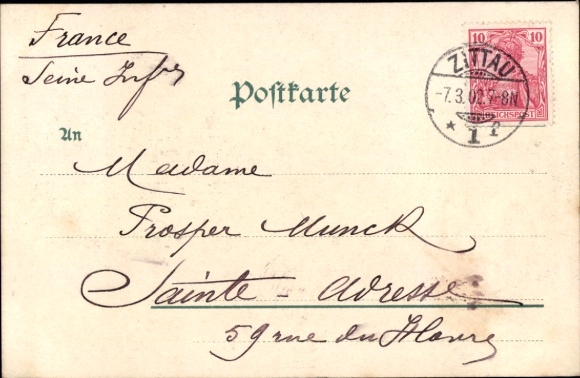 France
Seine Infre
10 10
REICHSPOST
ZITTAU
-7.3.02.7-8N
* 1
Postkarte
An
Madame
Prosper Munck
Sainte-Adresse
59 rue du Havre